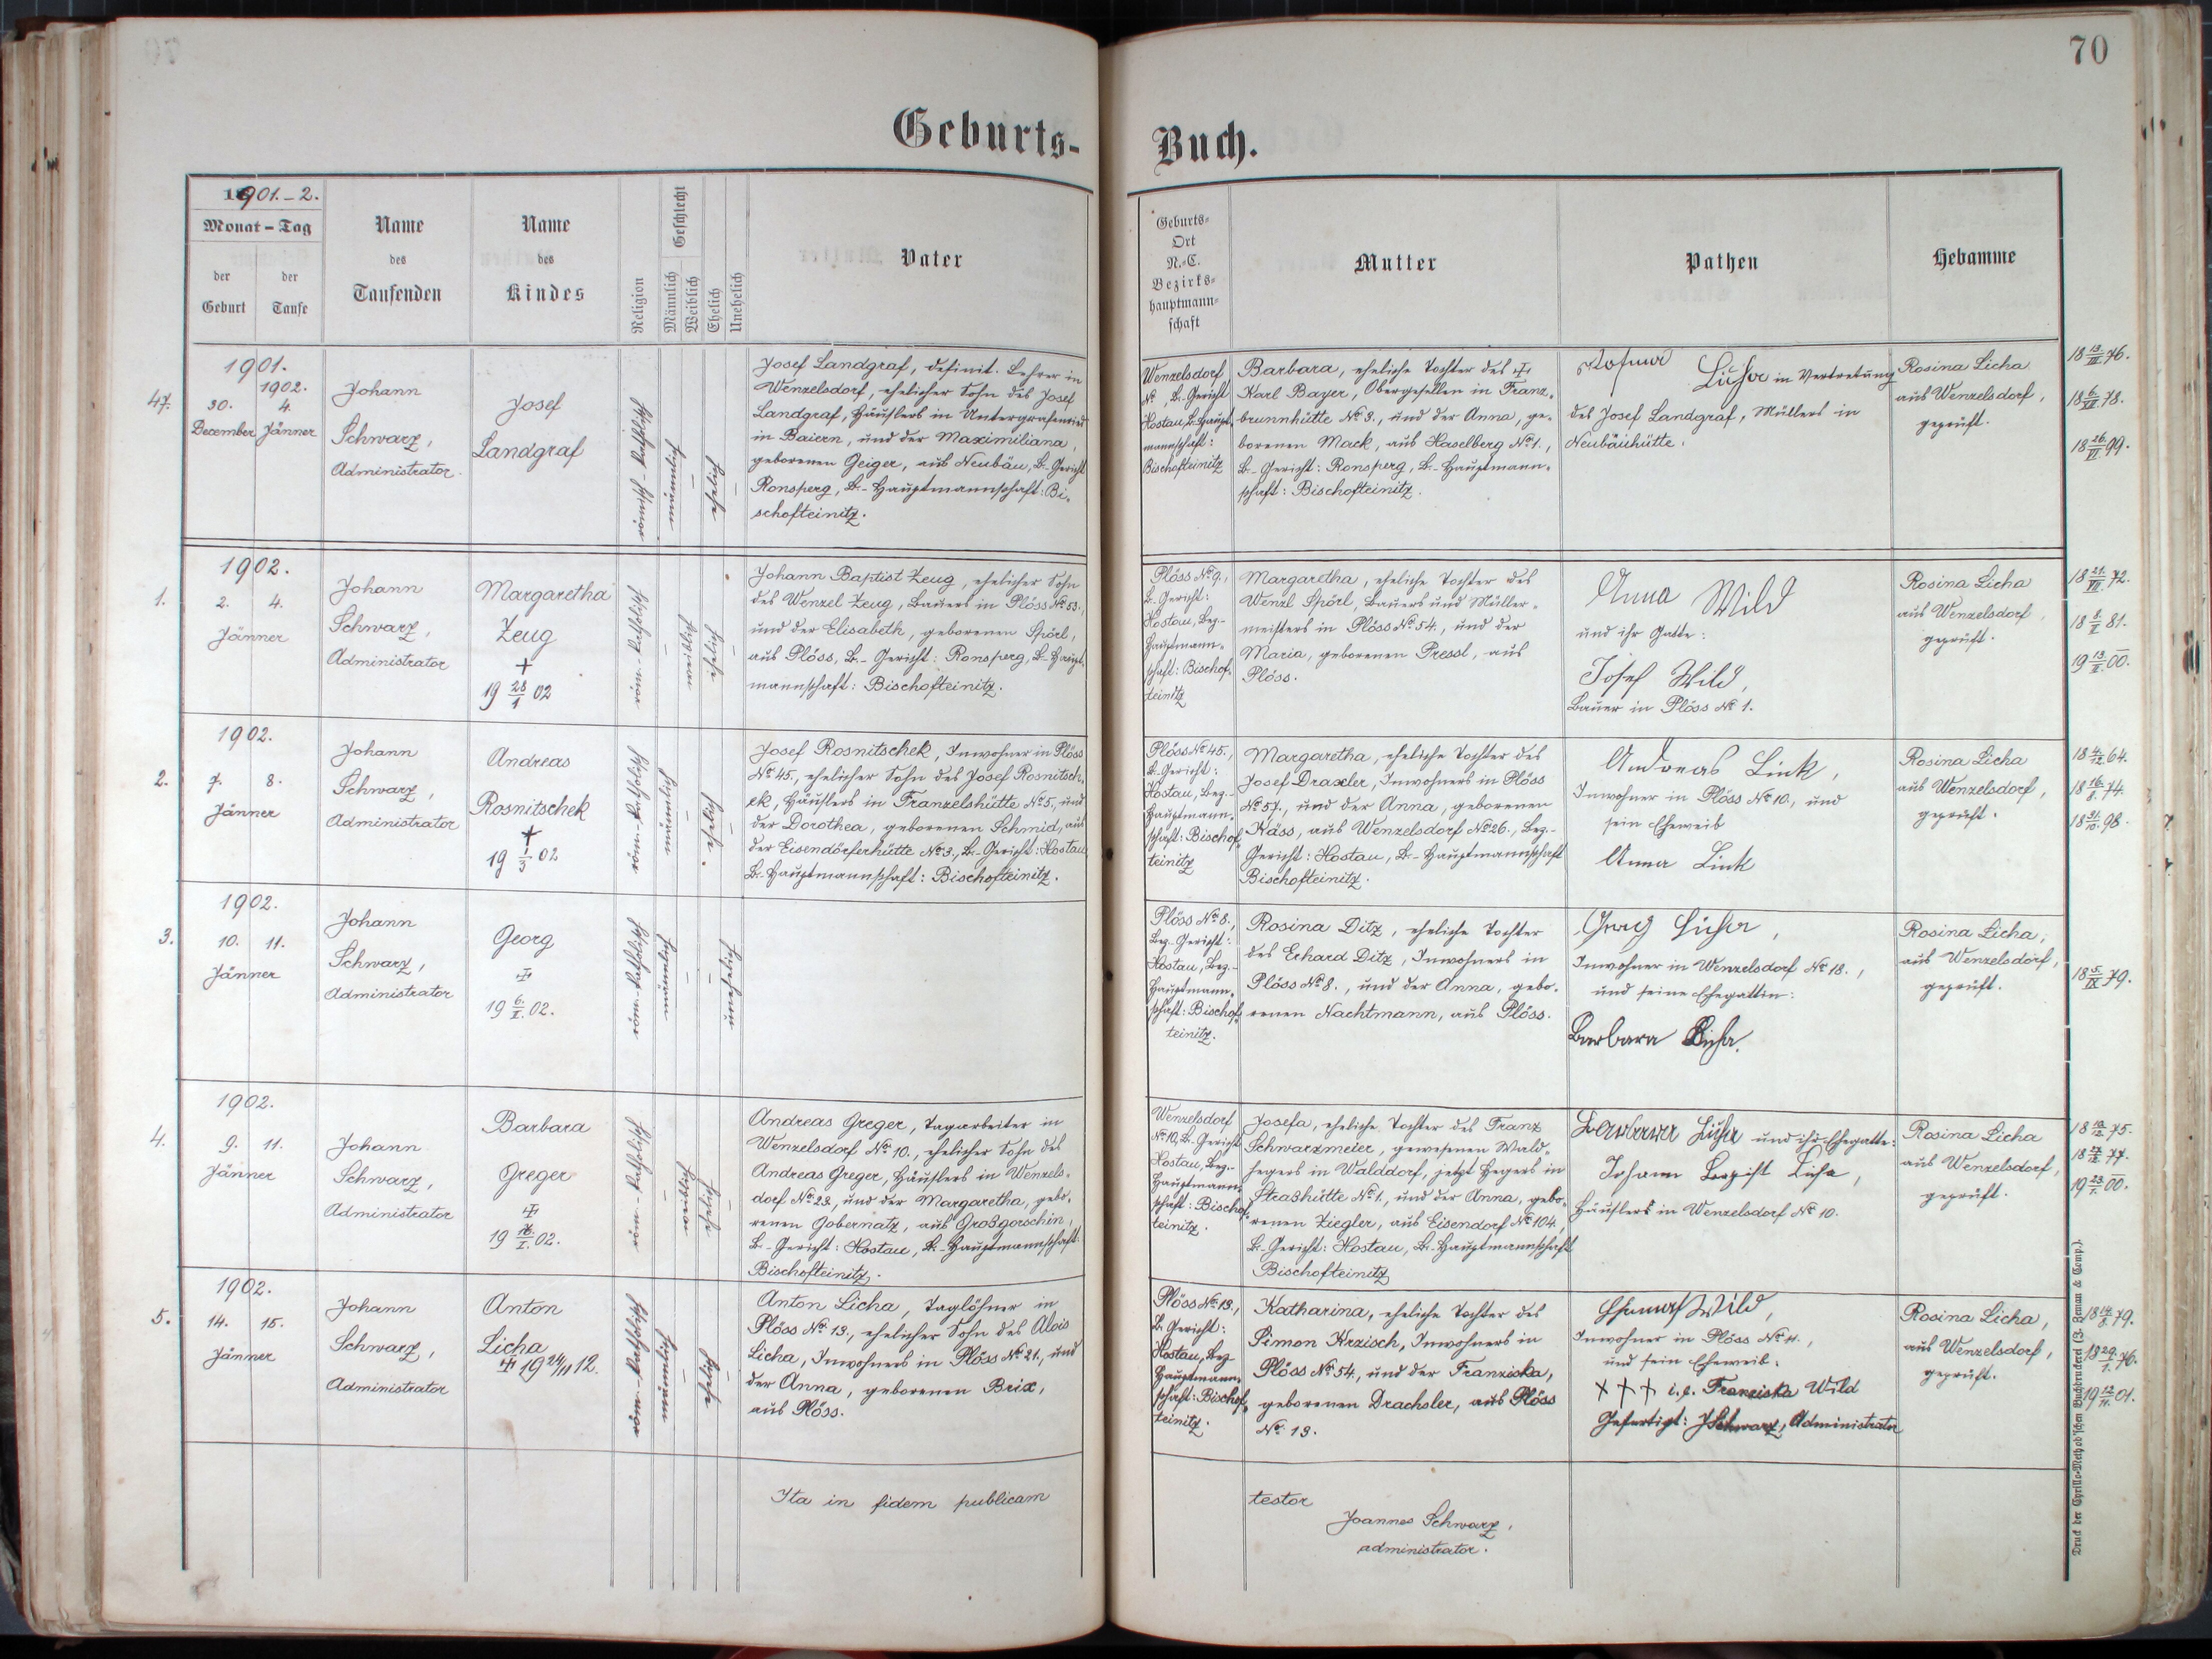 70
Geburts-
Buch.
1901.-2.
Monat - Tag
der Geburt
der Taufe
Name des Taufenden
Name des Kindes
Religion
Geschlecht
Männlich
Weiblich
Ehelich
Unehelich
Vater
Geburts-
Ort
N.-C.
Bezirks-
hauptmann-
schaft
Mutter
Pathen
Hebamme
47.
1901.
1902.
30. 4.
December Jänner
Johann
Schwarz,
Administrator.
Josef
Landgraf
römisch-katholisch
männlich
ehelich
Josef Landgraf, definit. Lehrer in
Wenzelsdorf, ehelicher Sohn des Josef
Landgraf, Häuslers in Untergrafenried
in Baiern, und der Maximiliana,
geborenen Geiger, aus Neubäu, B.-Gericht
Ronsperg, B.-Hauptmannschaft: Bi-
schofteinitz.
Wenzelsdorf
№ , B.-Gericht
Hostau, B.Haupt-
mannschaft:
Bischofteinitz
Barbara, eheliche Tochter des
Karl Bayer, Obergesellen in Franz-
brunnhütte № 3., und der Anna, ge-
borenen Mack, aus Haselberg № 1.,
B.-Gericht: Ronsperg, B.-Hauptmann-
schaft: Bischofteinitz.
Rosina Licha in Vertretung
des Josef Landgraf, Müllers in
Neubäuhütte.
Rosina Licha
aus Wenzelsdorf,
geprüft.
18 13/III 76.
18 6/VII 78.
18 26/VI 99.
1.
1902.
2. 4.
Jänner
Johann
Schwarz,
Administrator
Margaretha
Zeug
†
19 28/1 02
röm.-katholisch
weiblich
ehelich
Johann Baptist Zeug, ehelicher Sohn
des Wenzel Zeug, Bauers in Plöss № 53.,
und der Elisabeth, geborenen Spörl,
aus Plöss, B.-Gericht: Ronsperg, B-Haupt-
mannschaft: Bischofteinitz.
Plöss № 9.,
B.-Gericht:
Hostau, Bez.-
Hauptmann-
schaft: Bischof-
teinitz
Margaretha, eheliche Tochter des
Wenzl Spörl, Bauers und Müller-
meisters in Plöss № 54., und der
Maria, geborenen Pressl, aus
Plöss.
Anna Wild
und ihr Gatte:
Josef Wild,
Bauer in Plöss № 1.
Rosina Licha
aus Wenzelsdorf,
geprüft.
18 21./VII. 72.
18 81.
19 13/II. 00.
2.
1902.
7. 8.
Jänner
Johann
Schwarz,
Administrator
Andreas
Rosnitschek
†
19 1/3 02
röm.-katholisch
männlich
ehelich.
Josef Rosnitschek, Inwohner in Plöss
№ 45., ehelicher Sohn des Josef Rosnitsch-
ek, Häuslers in Franzelshütte № 5., und
der Dorothea, geborenen Schmid, aus
der Eisendörferhütte № 3., B.-Gericht: Hostau,
B.-Hauptmannschaft: Bischofteinitz.
Plöss № 45.,
B.-Gericht:
Hostau, Bez.-
Hauptmann-
schaft: Bischof-
teinitz
Margaretha, eheliche Tochter des
Josef Draxler, Inwohners in Plöss
№ 57., und der Anna, geborenen
Käss, aus Wenzelsdorf № 26., Bez.-
Gericht: Hostau, B.-Hauptmannschaft
Bischofteinitz.
Andreas Link,
Inwohner in Plöss № 10., und
sein Eheweib
Anna Link
Rosina Licha
aus Wenzelsdorf,
geprüft.
18 4./12. 64.
18 16./8. 74.
18 31./10. 98.
3.
1902.
10. 11.
Jänner
Johann
Schwarz,
Administrator
Georg
19 6./I. 02.
röm.-katholisch
männlich
unehelich
Plöss № 8.,
Bez.-Gericht:
Hostau, Bez.-
Hauptmann-
schaft: Bischof-
teinitz.
Rosina Ditz, eheliche Tochter
des Erhard Ditz, Inwohners in
Plöss № 8., und der Anna, gebo-
renen Nachtmann, aus Plöss.
Georg Licha,
Inwohner in Wenzelsdorf № 18.,
und seine Ehegattin:
Barbara Licha.
Rosina Licha,
aus Wenzelsdorf,
geprüft.
18 5./IX 79.
4.
1902.
9. 11.
Jänner
Johann
Schwarz,
Administrator
Barbara
Greger
19 02.
röm.-katholisch
weiblich
ehelich
Andreas Greger, Tagarbeiter in
Wenzelsdorf № 10., ehelicher Sohn des
Andreas Greger, Häuslers in Wenzels-
dorf № 23., und der Margaretha, gebo-
renen Gobernatz, aus Großgorschin,
B.-Gericht: Hostau, B.-Hauptmannschaft:
Bischofteinitz.
Wenzelsdorf
№ 10, B.-Gericht
Hostau, Bez.-
Hauptmann-
schaft: Bischof-
teinitz.
Josefa, eheliche Tochter des Franz
Schwarzmeier, gewesenen Wald-
hegers in Walddorf, jetzt Hegers in
Straßhütte № 1., und der Anna, gebo-
renen Ziegler, aus Eisendorf № 104,
B.-Gericht: Hostau, B.-Hauptmannschaft
Bischofteinitz
Barbara Licha und ihr Ehegatte:
Johann Baptist Licha,
Häuslers in Wenzelsdorf № 10.
Rosina Licha
aus Wenzelsdorf,
geprüft.
18 75.
18 77.
19 23./1. 00.
5.
1902.
14. 15.
Jänner
Johann
Schwarz,
Administrator
Anton
Licha
19 24/11 12.
röm.-katholisch
männlich
ehelich
Anton Licha, Taglöhner in
Plöss № 13., ehelicher Sohn des Alois
Licha, Inwohners in Plöss № 21., und
der Anna, geborenen Brix,
aus Plöss.
Plöss № 13.,
B. Gericht:
Hostau, Bez-
Hauptmann-
schaft: Bischof-
teinitz.
Katharina, eheliche Tochter des
Simon Krzisch, Inwohners in
Plöss № 54., und der Franziska,
geborenen Drachsler, aus Plöss
№ 13.
Wild,
Inwohner in Plöss № 11.,
und sein Eheweib:
††† i. e. Franziska Wild
Gefertigt: J Schwarz, Administrator
Rosina Licha,
aus Wenzelsdorf,
geprüft.
18 14./8. 79.
18 29./1. 76.
19 12/11. 01.
Ita in fidem publicam
testor
Joannes Schwarz,
administrator.
Druck der Cyrillo-Method'schen Buchdruckerei (J. Zeman & Comp.).